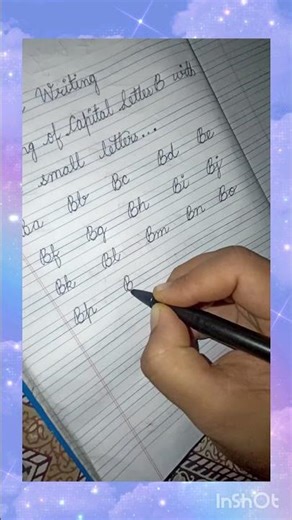 Writing
of Capital letter B with
small letters...
Ba Bb Bc Bd Be
Bf Bg Bh Bi Bj
Bk Bl Bm Bn Bo
Bp B
InShOt